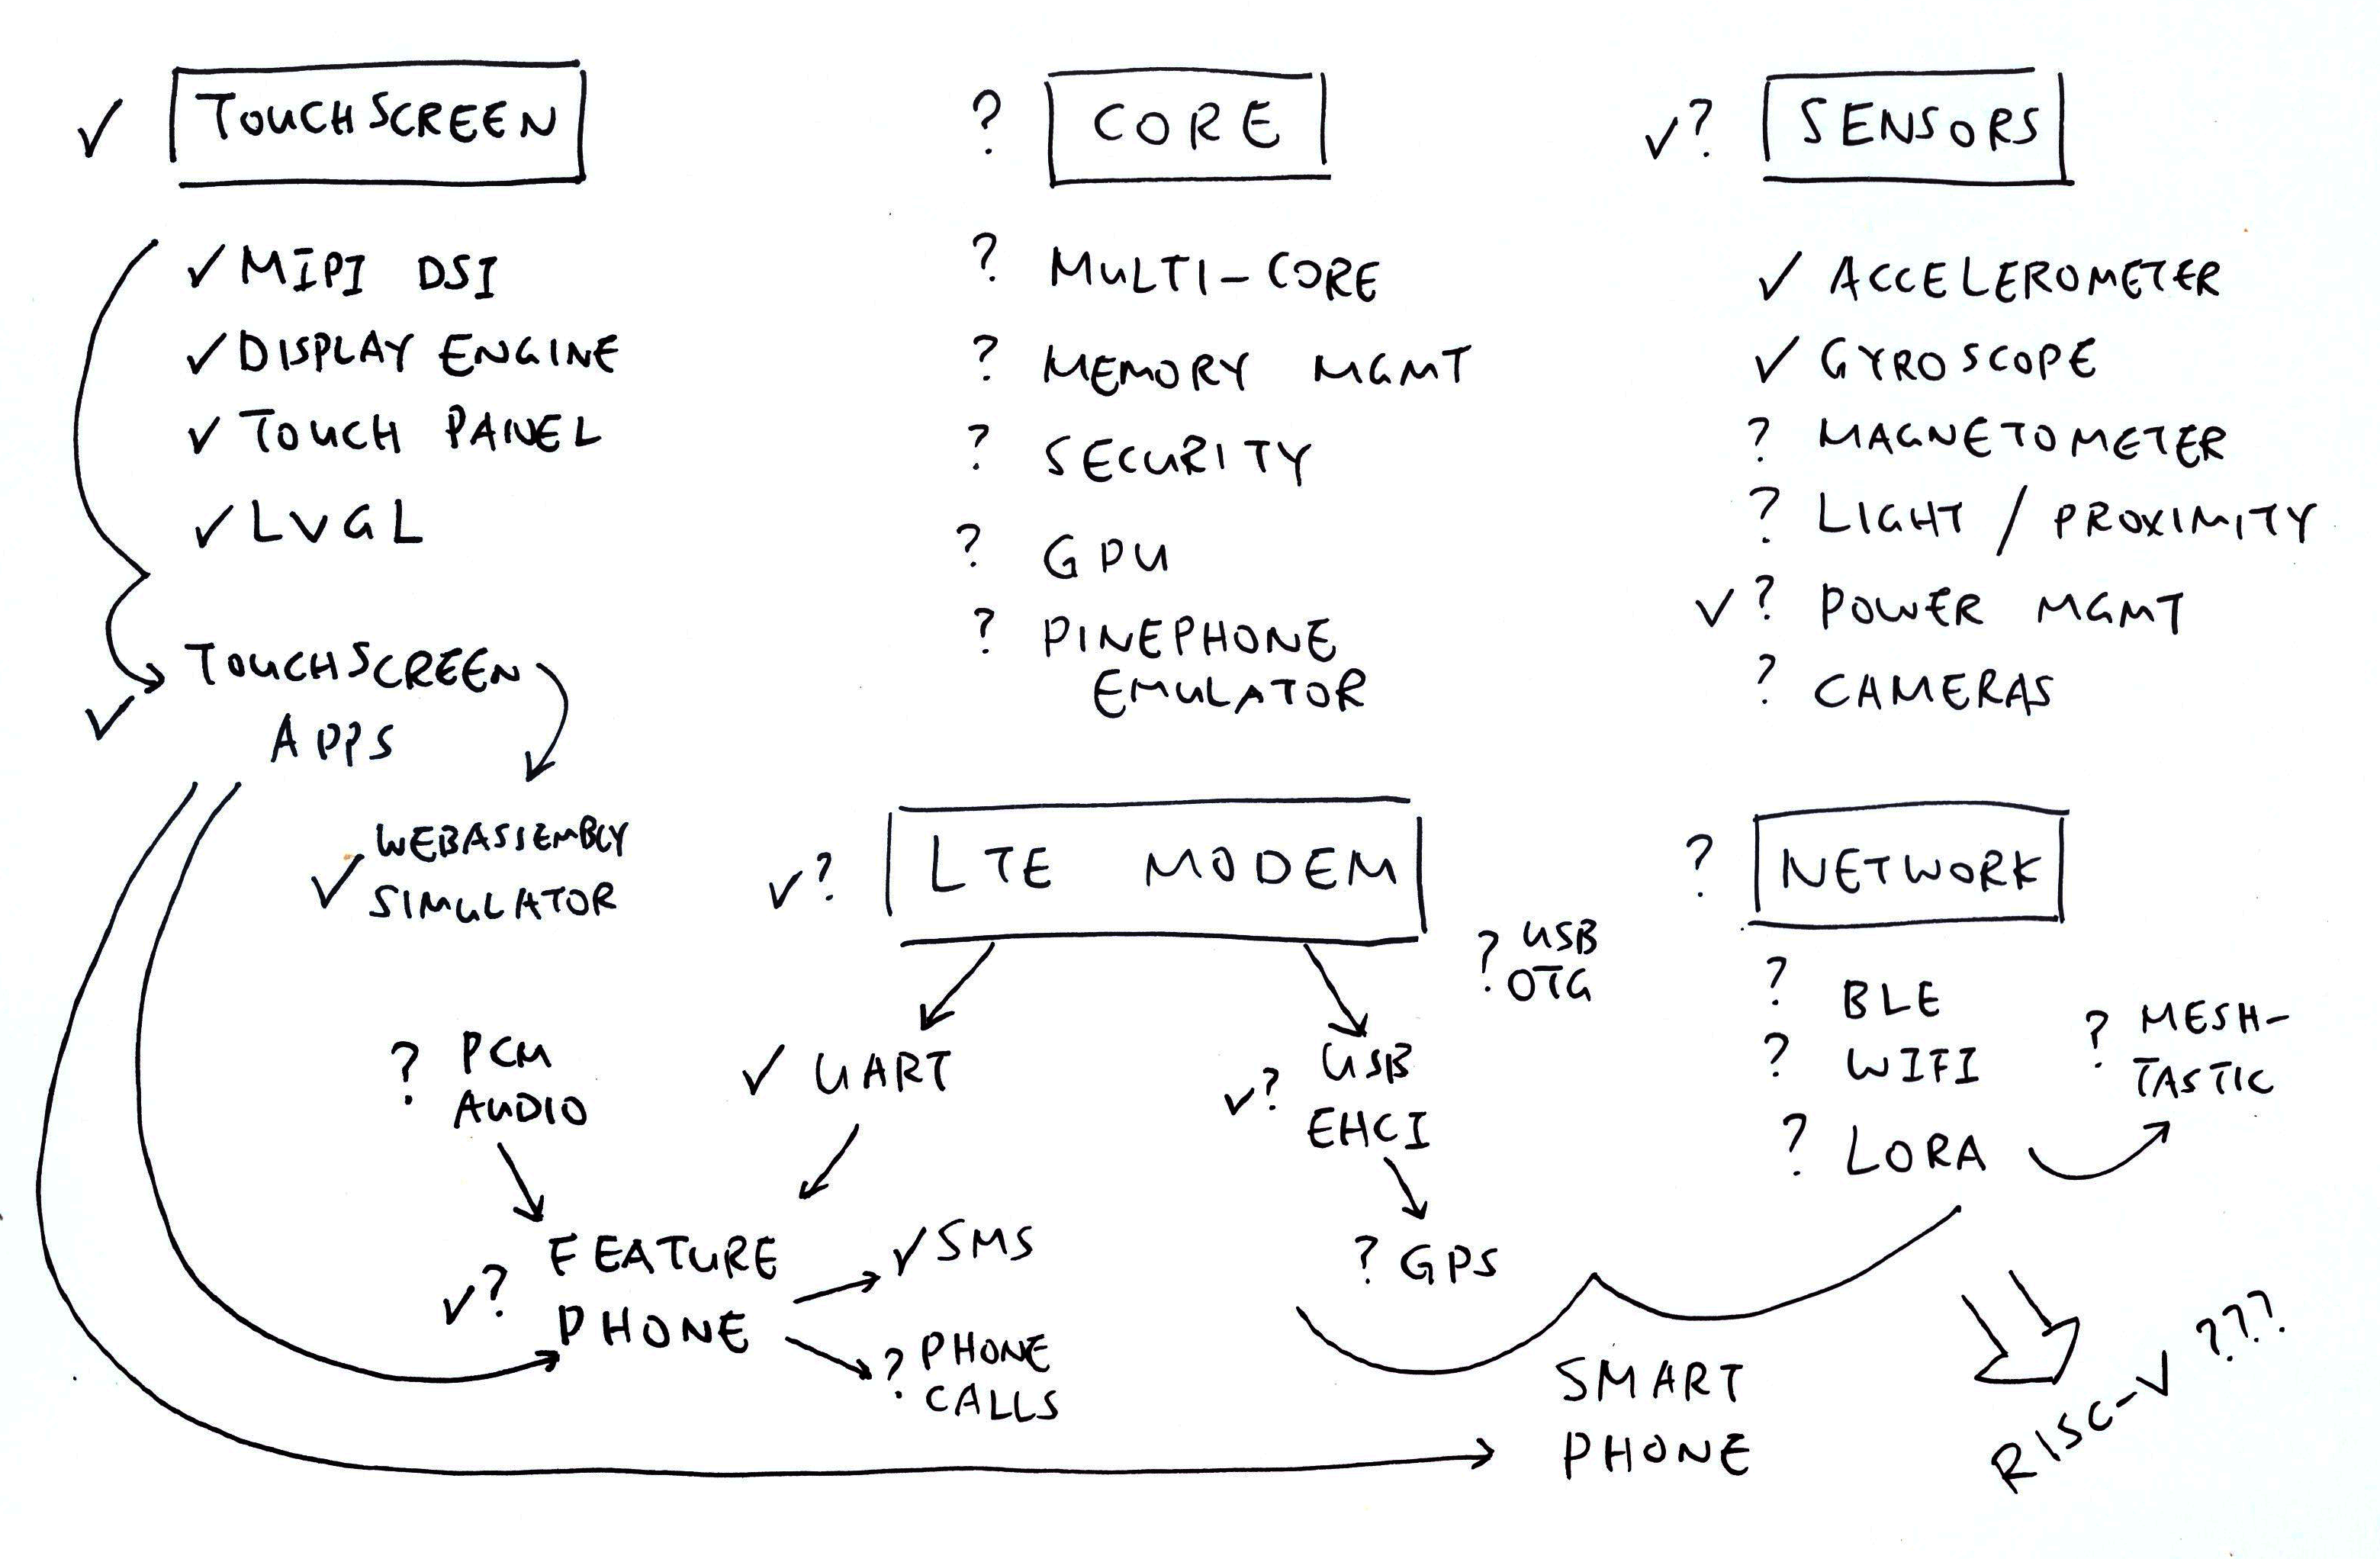 ✓ TOUCHSCREEN
✓ MIPI DSI
✓ DISPLAY ENGINE
✓ TOUCH PANEL
✓ LVGL
TOUCHSCREEN
✓ APPS
WEBASSEMBLY
✓ SIMULATOR
? CORE
? MULTI-CORE
? MEMORY MGMT
? SECURITY
? GPU
? PINEPHONE
EMULATOR
✓? SENSORS
✓ ACCELEROMETER
✓ GYROSCOPE
? MAGNETOMETER
? LIGHT / PROXIMITY
✓? POWER MGMT
? CAMERAS
✓? LTE MODEM
? USB
OTG
? PCM
AUDIO
✓ UART
✓? USB
EHCI
✓? FEATURE
PHONE
✓ SMS
? PHONE
CALLS
? GPS
? NETWORK
? BLE
? WIFI
? LORA
? MESH-
TASTIC
SMART
PHONE
RISC-V ???